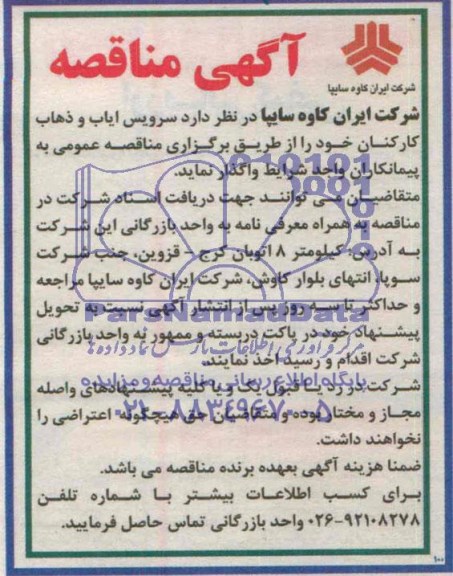 آگهی مناقصه
شرکت ایران کاوه سایپا
شرکت ایران کاوه سایپا در نظر دارد سرویس ایاب و ذهاب
کارکنان خود را از طریق برگزاری مناقصه عمومی به
پیمانکاران واجد شرایط واگذار نماید.
متقاضیان می توانند جهت دریافت اسناد شرکت در
مناقصه به همراه معرفی نامه به واحد بازرگانی این شرکت
به آدرس: کیلومتر ۸ اتوبان کرج - قزوین، جنب شرکت
سوپا، انتهای بلوار کاوش، شرکت ایران کاوه سایپا مراجعه
و حداکثر تا سه روز پس از انتشار آگهی نسبت به تحویل
پیشنهاد خود در پاکت دربسته و ممهور به واحد بازرگانی
شرکت اقدام و رسید اخذ نمایند.
شرکت در رد یا قبول یک و یا کلیه پیشنهادهای واصله
مجاز و مختار بوده و متقاضیان حق هیچگونه اعتراضی را
نخواهند داشت.
ضمنا هزینه آگهی بعهده برنده مناقصه می باشد.
برای کسب اطلاعات بیشتر با شماره تلفن
۰۲۶-۹۲۱۰۸۲۷۸ واحد بازرگانی تماس حاصل فرمایید.
ParsNamadData
مرکز فرآوری اطلاعات پارس نماد داده ها
پایگاه اطلاع رسانی مناقصه و مزایده
۰۲۱-۸۸۳۴۹۶۷۰-۵